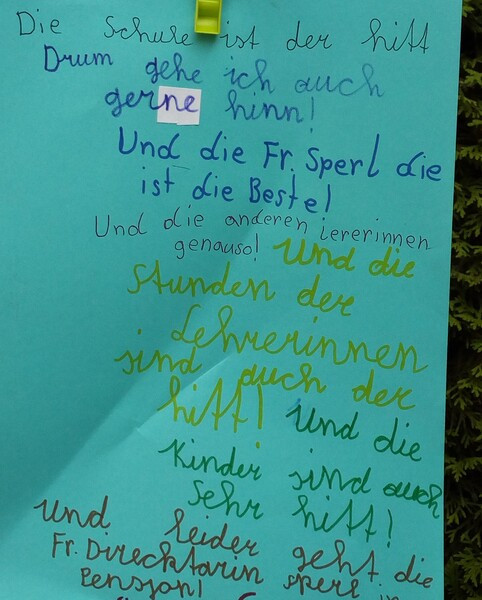 Die Schule ist der hitt
Drum gehe ich auch
gerne hinn!
Und die Fr. Sperl die
ist die Beste!
Und die anderen lererinnen
genauso! Und die
Stunden der
Lehrerinnen
sind auch der
hitt! Und die
Kinder sind auch
sehr hitt!
Und leider geht die
Fr. Direcktarin sperl in
Pensjon!